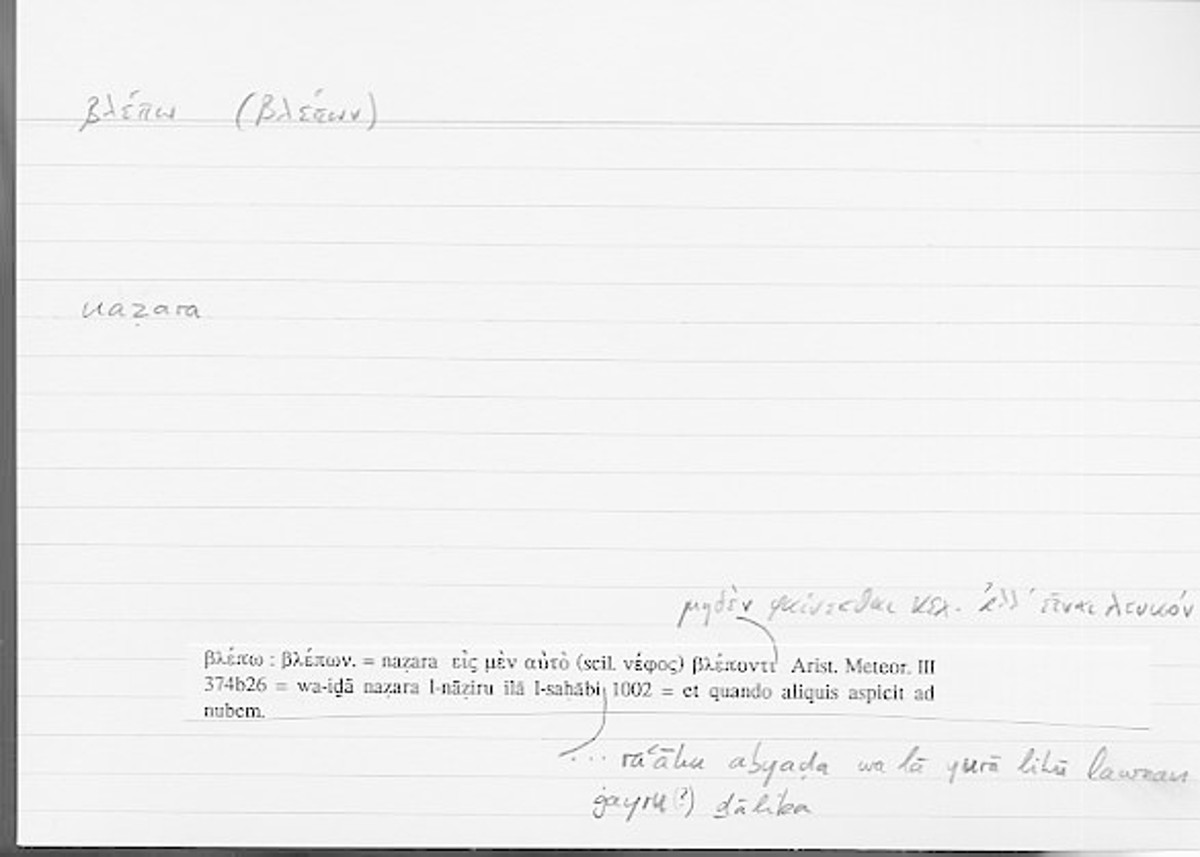 βλέπω (βλέπων)
naẓara
μηδὲν φαίνεσθαι κεχ. ἀλλ' εἶναι λευκόν
βλέπω : βλέπων. = naẓara εἰς μὲν αὐτὸ (scil. νέφος) βλέποντι Arist. Meteor. III
374b26 = wa-iḏā naẓara l-nāẓiru ilā l-saḥābi 1002 = et quando aliquis aspicit ad
nubem.
... ra'āhu abyaḍa wa lā yurā lahū lawnan
ġayru (?) ḏālika